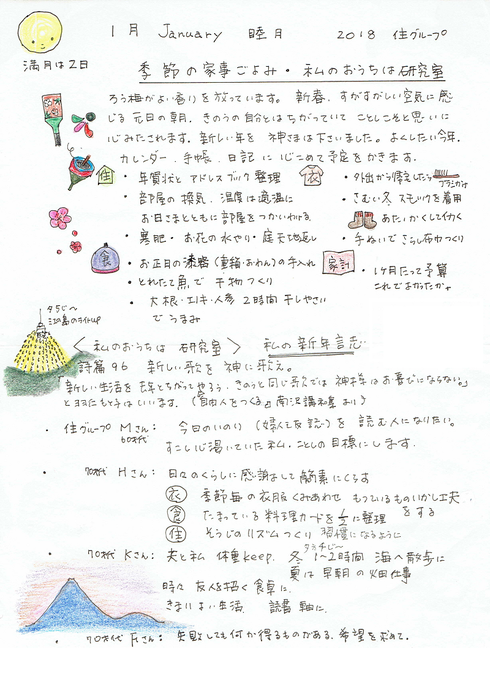 1月 January 睦月 2018 住グループ
満月は2日
季節の家事ごよみ・私のおうちは研究室
ろう梅がよい香りを放っています。新春、すがすがしい空気に感
じる元日の朝。きのうの自分とはちがっていて ことしこそと思いに
心みたされます。新しい年を 神さまは下さいました。よくしたい今年。
カレンダー、手帳、日記に心こめて予定をかきます。
住
・年賀状とアドレスブック整理
・部屋の換気、温度は適温に
お日さまとともに部屋をつかいわける
・寒肥・お花の水やり・庭 天地返し
食
・お正月の漆器(重箱・おわん)の手入れ
・とれたて魚で干物つくり
・大根・エリンギ・人参 2時間干しやさい
でうまみ
衣
・外出から帰宅したら ブラシかけ
・さむい冬 スモックを着用
あたたかくしてはたらく
・手ぬいで さらし布巾つくり
家計
・1ヶ月たって予算
これでよかったかな
タ5じ〜
江の島のライトUP
〈私のおうちは 研究室〉 私の新年言志
詩篇96 新しい歌を 神に歌え。
「新しい生活を 去年とちがってやろう、きのうと同じ歌では 神様はお喜びにならない。」
と羽仁もと子はいいます。(自由人をつくる 南沢講和集より)
・住グループ Mさん: 今日のいのり(婦人之友 読)を 読む人になりたい。
60才代
すこし心渇いていた私、ことしの目標にします。
・70才代 Hさん: 日々のくらしに感謝して簡素にくらす
衣 季節毎の衣服くみあわせ もっているものいかし工夫
をする
食 たまっている料理カードを1/2に整理
住 そうじのリズムつくり 習慣になるように
・70才代 Kさん: 夫と私 体重keep. 冬 1〜2時間 海へ散歩に
夏は 早朝の畑仕事
時々 友人を招く食卓に。
きまりよい生活、読書 軸に。
・70才代 Fさん: 失敗しても何か得るものがある。希望を求めて。